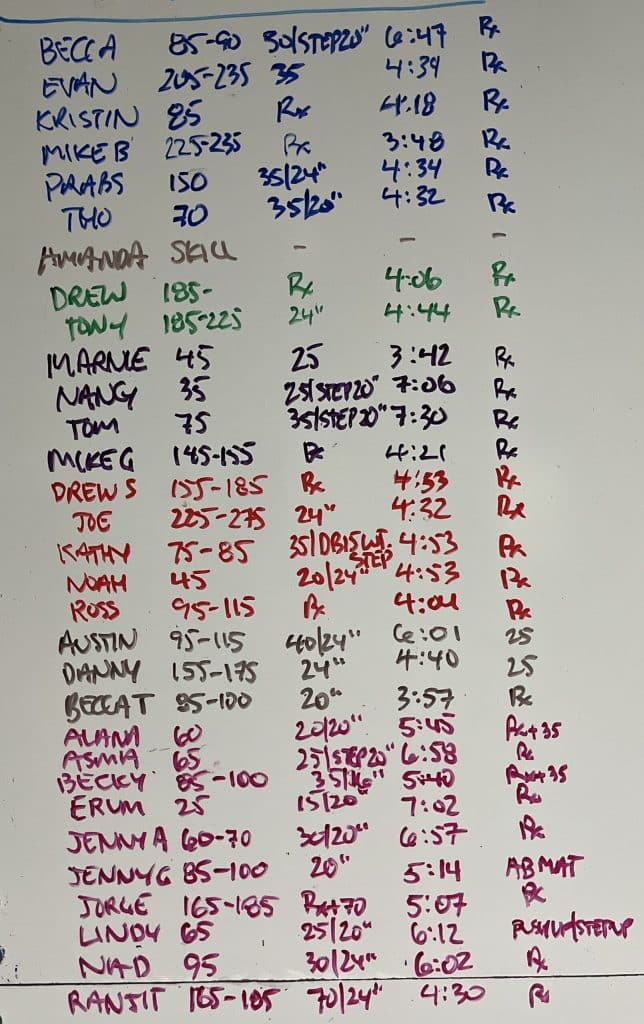 BECCA 85-90 30/STEP20" 6:47 Rx
EVAN 205-235 35 4:39 Rx
KRISTIN 85 Rx 4:18 Rx
MIKE B 225-235 Rx 3:48 Rx
PRABS 150 35/24" 4:34 Rx
THO 70 35/20" 4:32 Rx
AMANDA SKILL - - -
DREW 185- Rx 4:06 Rx
TONY 185-225 24" 4:44 Rx
MARNIE 45 25 3:42 Rx
NANCY 35 25/STEP20" 7:06 Rx
TOM 75 35/STEP20" 7:30 Rx
MIKE G 145-155 Rx 4:21 Rx
DREW S 155-185 Rx 4:53 Rx
JOE 225-275 24" 4:32 Rx
KATHY 75-85 35/DB15WT. STEP 4:53 Rx
NOAH 45 20/24" 4:53 Rx
ROSS 95-115 Rx 4:04 Rx
AUSTIN 95-115 40/24" 6:01 25
DANNY 155-175 24" 4:40 25
BECCA T 85-100 20" 3:57 Rx
ALANA 60 20/20" 5:45 Rx+35
ASMIA 65 25/STEP20" 6:58 Rx
BECKY 85-100 35/16" 5:40 Rx+35
ERUM 25 15/20" 7:02 Rx
JENNY A 60-70 30/20" 6:57 Rx
JENNY G 85-100 20" 5:14 ABMAT
JORGE 165-185 Rx+70 5:07 Rx
LINDY 65 25/20" 6:12
NAD 95 30/24" 6:02 Rx
RANJIT 70/24" 4:30 Rx